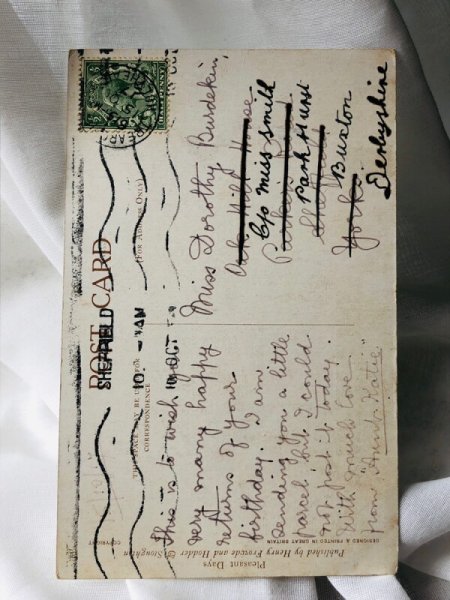 POST CARD
THIS SPACE MAY BE USED FOR
CORRESPONDENCE
(FOR ADDRESS ONLY)
SHEFFIELD
10 - AM
10 OC
This is to wish you
very many happy
returns of your
birthday. I am
sending you a little
parcel but I could
not post it today.
With much love
from "Aunt Katie"
Miss Dorothy Burdekin,
Hill House
C/o Miss Smild
Park Hurst
Sheffield
Buxton
Yorks.
Derbyshire
COPYRIGHT
DESIGNED & PRINTED IN GREAT BRITAIN
Published by Henry Frowde and Hodder & Stoughton
Pleasant Days